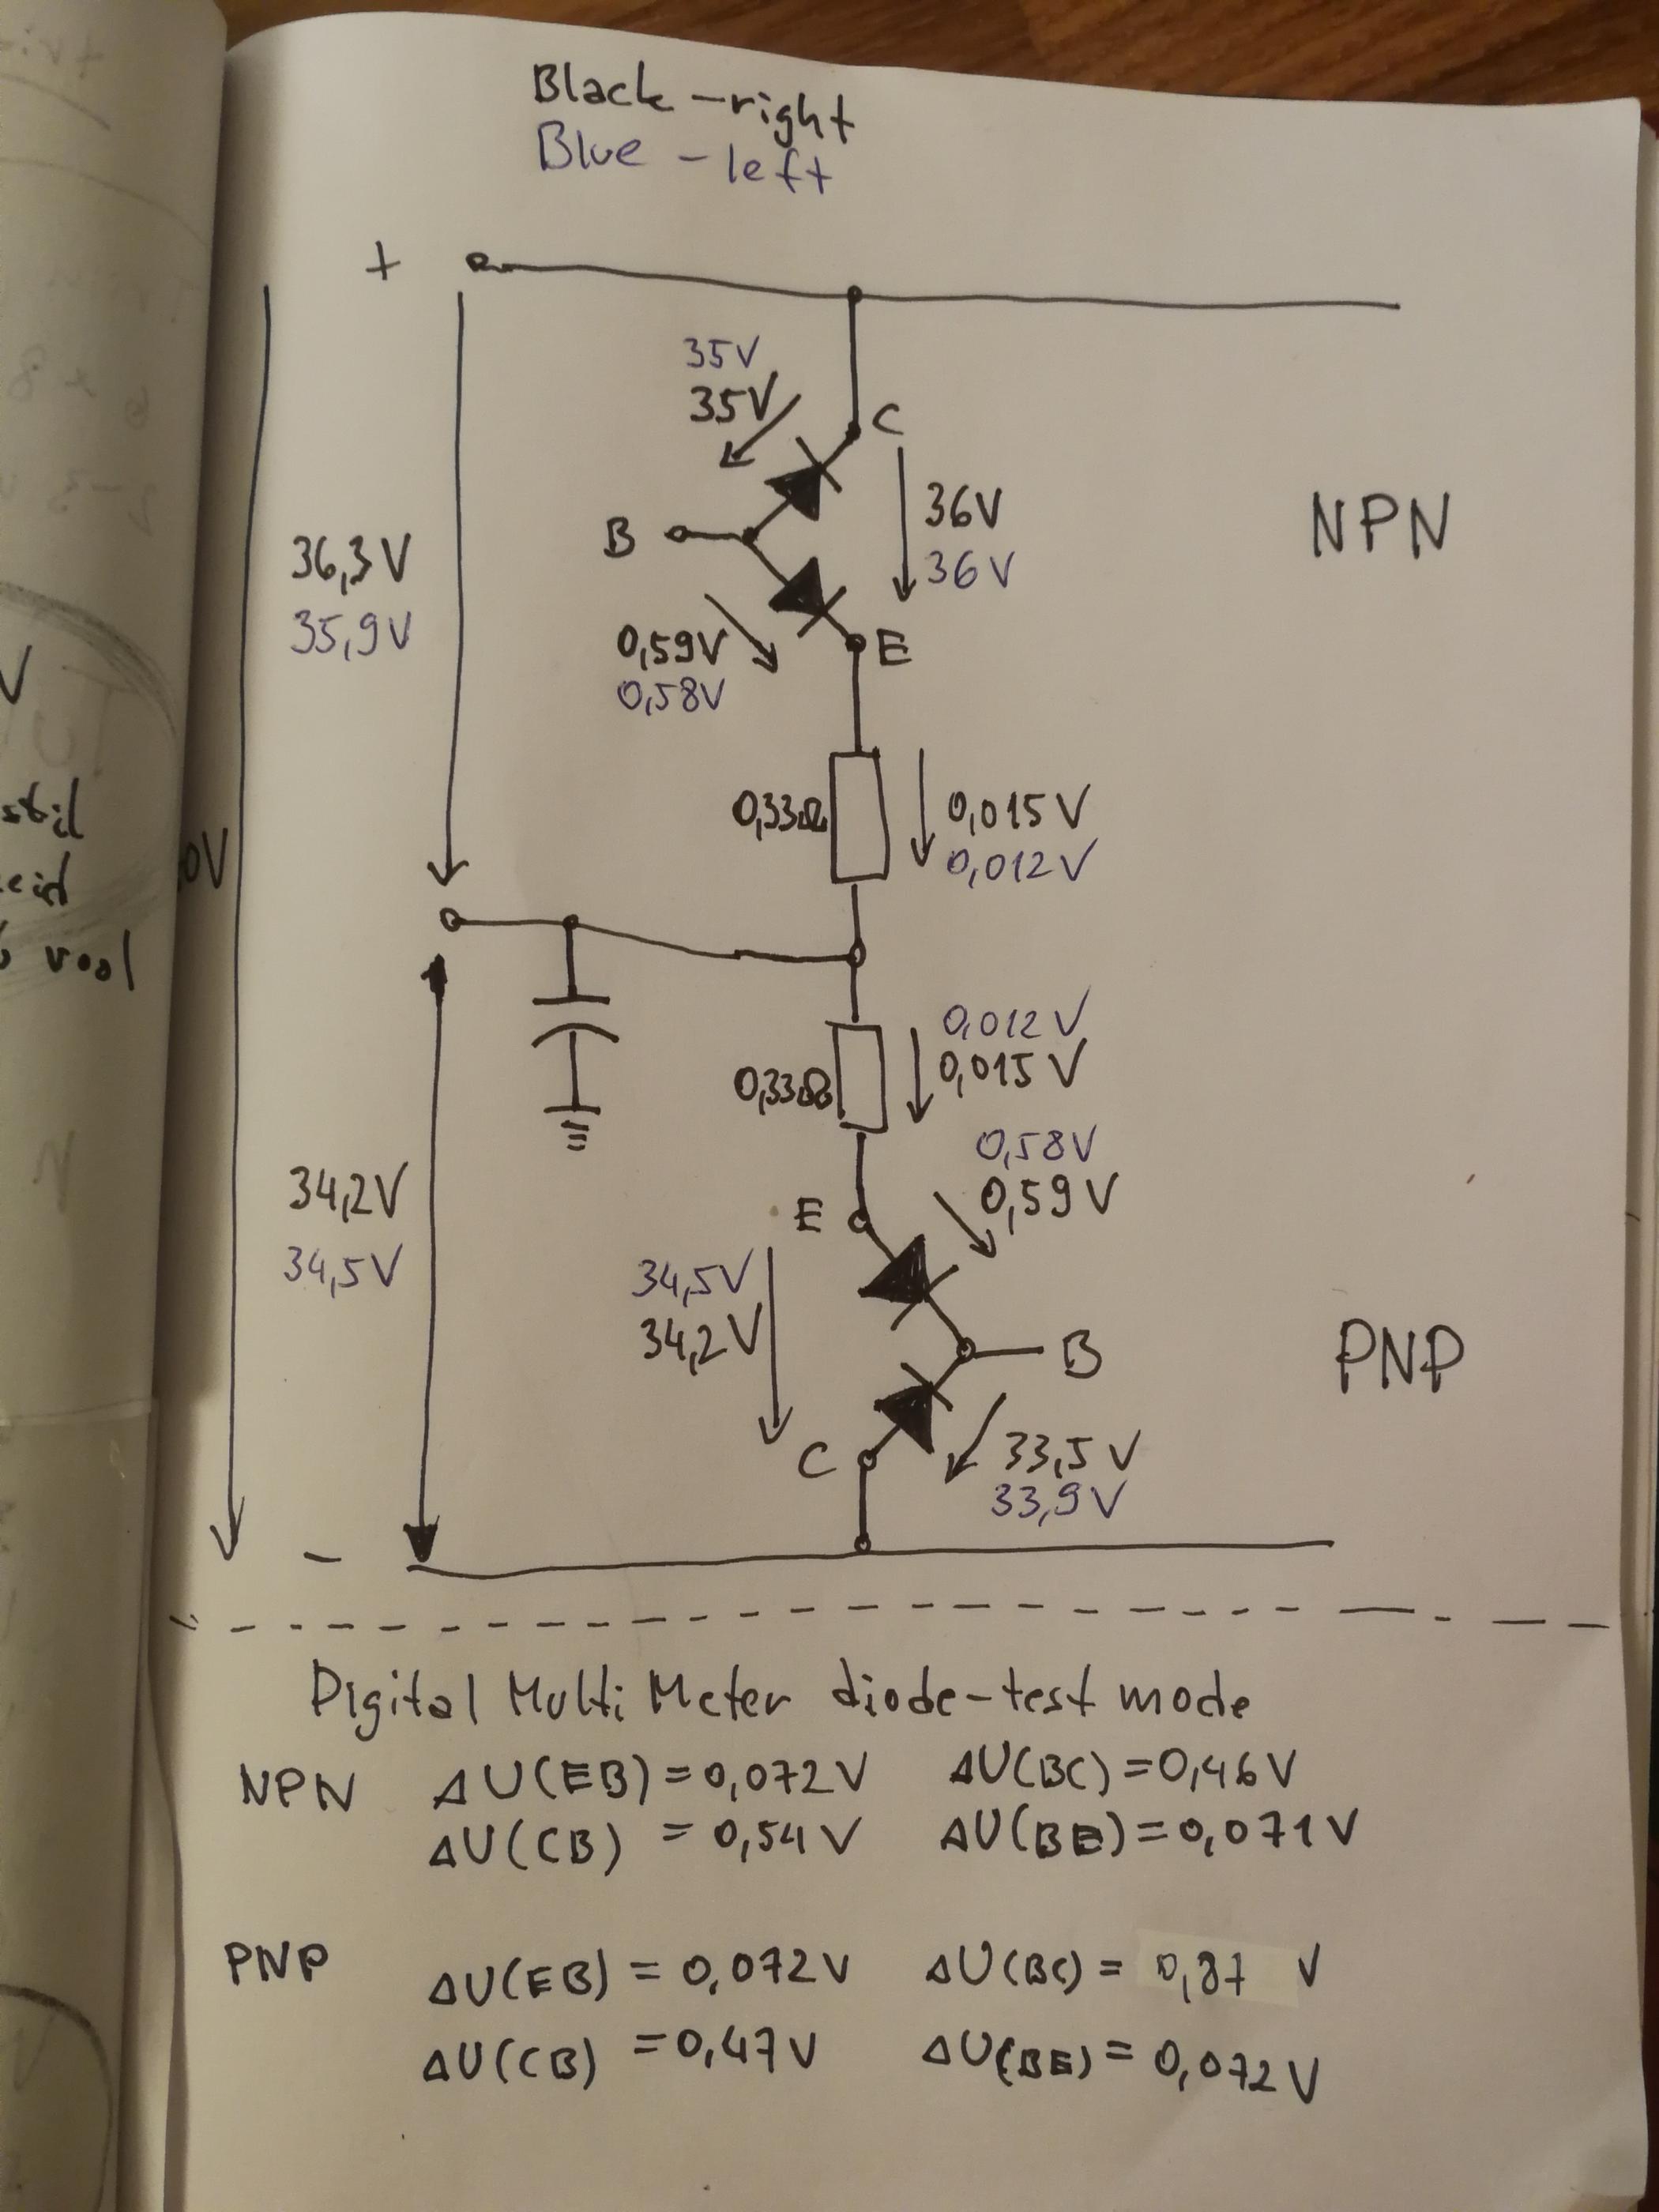 Black - right
Blue - left
+
35V
35V
C
B
36V
36V
NPN
36,3V
35,9V
0,59V
0,58V
E
0,33Ω
0,015V
0,012V
0V
stil
vool
0,012V
0,015V
0,33Ω
0,58V
0,59V
34,2V
34,5V
E
34,5V
34,2V
B
PNP
C
33,5V
33,9V
-
Digital Multi Meter diode-test mode
NPN ΔU(EB) = 0,072V ΔU(BC) = 0,46V
ΔU(CB) = 0,54V ΔU(BE) = 0,071V
PNP ΔU(EB) = 0,072V ΔU(BC) = 0,87 V
ΔU(CB) = 0,47V ΔU(BE) = 0,072V